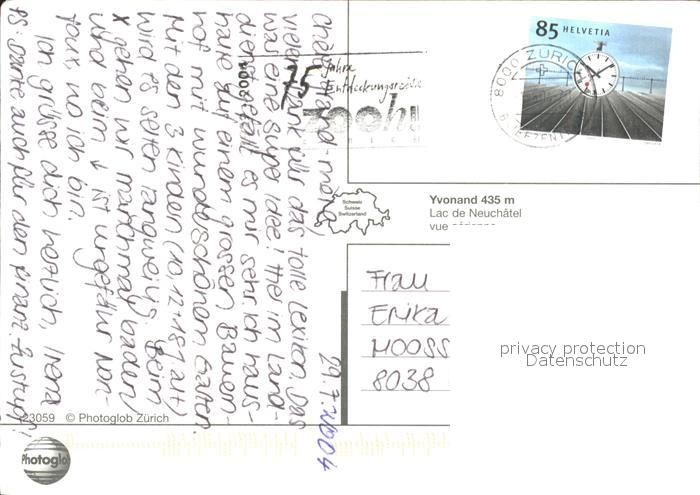 29.7.2004
Chère grand-mère,
vielen Dank für das tolle Lexikon. Das
war eine supe Idee! Hier im Land-
dienst gefällt es mir sehr. Ich haus-
hate auf einem grossen Bauern-
hof mit wunderschönem Garten.
Mit den 3 Kindern (10, 12 + 18½ alt)
wird es selten langweilig. Beim
x gehen wir manchmal baden
und beim ↓ ist ungefähr Mon-
taux wo ich bin.
Ich grüsse dich herzlich, Irena
PS: Danke auch für den finanz. Zustupf!
75 Jahre
Entdeckungsreise
zooh!
85 HELVETIA
8000 ZÜRICH
BRIEFZENTRUM
Schweiz
Suisse
Switzerland
Yvonand 435 m
Lac de Neuchâtel
vue aérienne
Frau
Erika
MOOSS
8038
privacy protection
Datenschutz
23059 © Photoglob Zürich
Photoglob